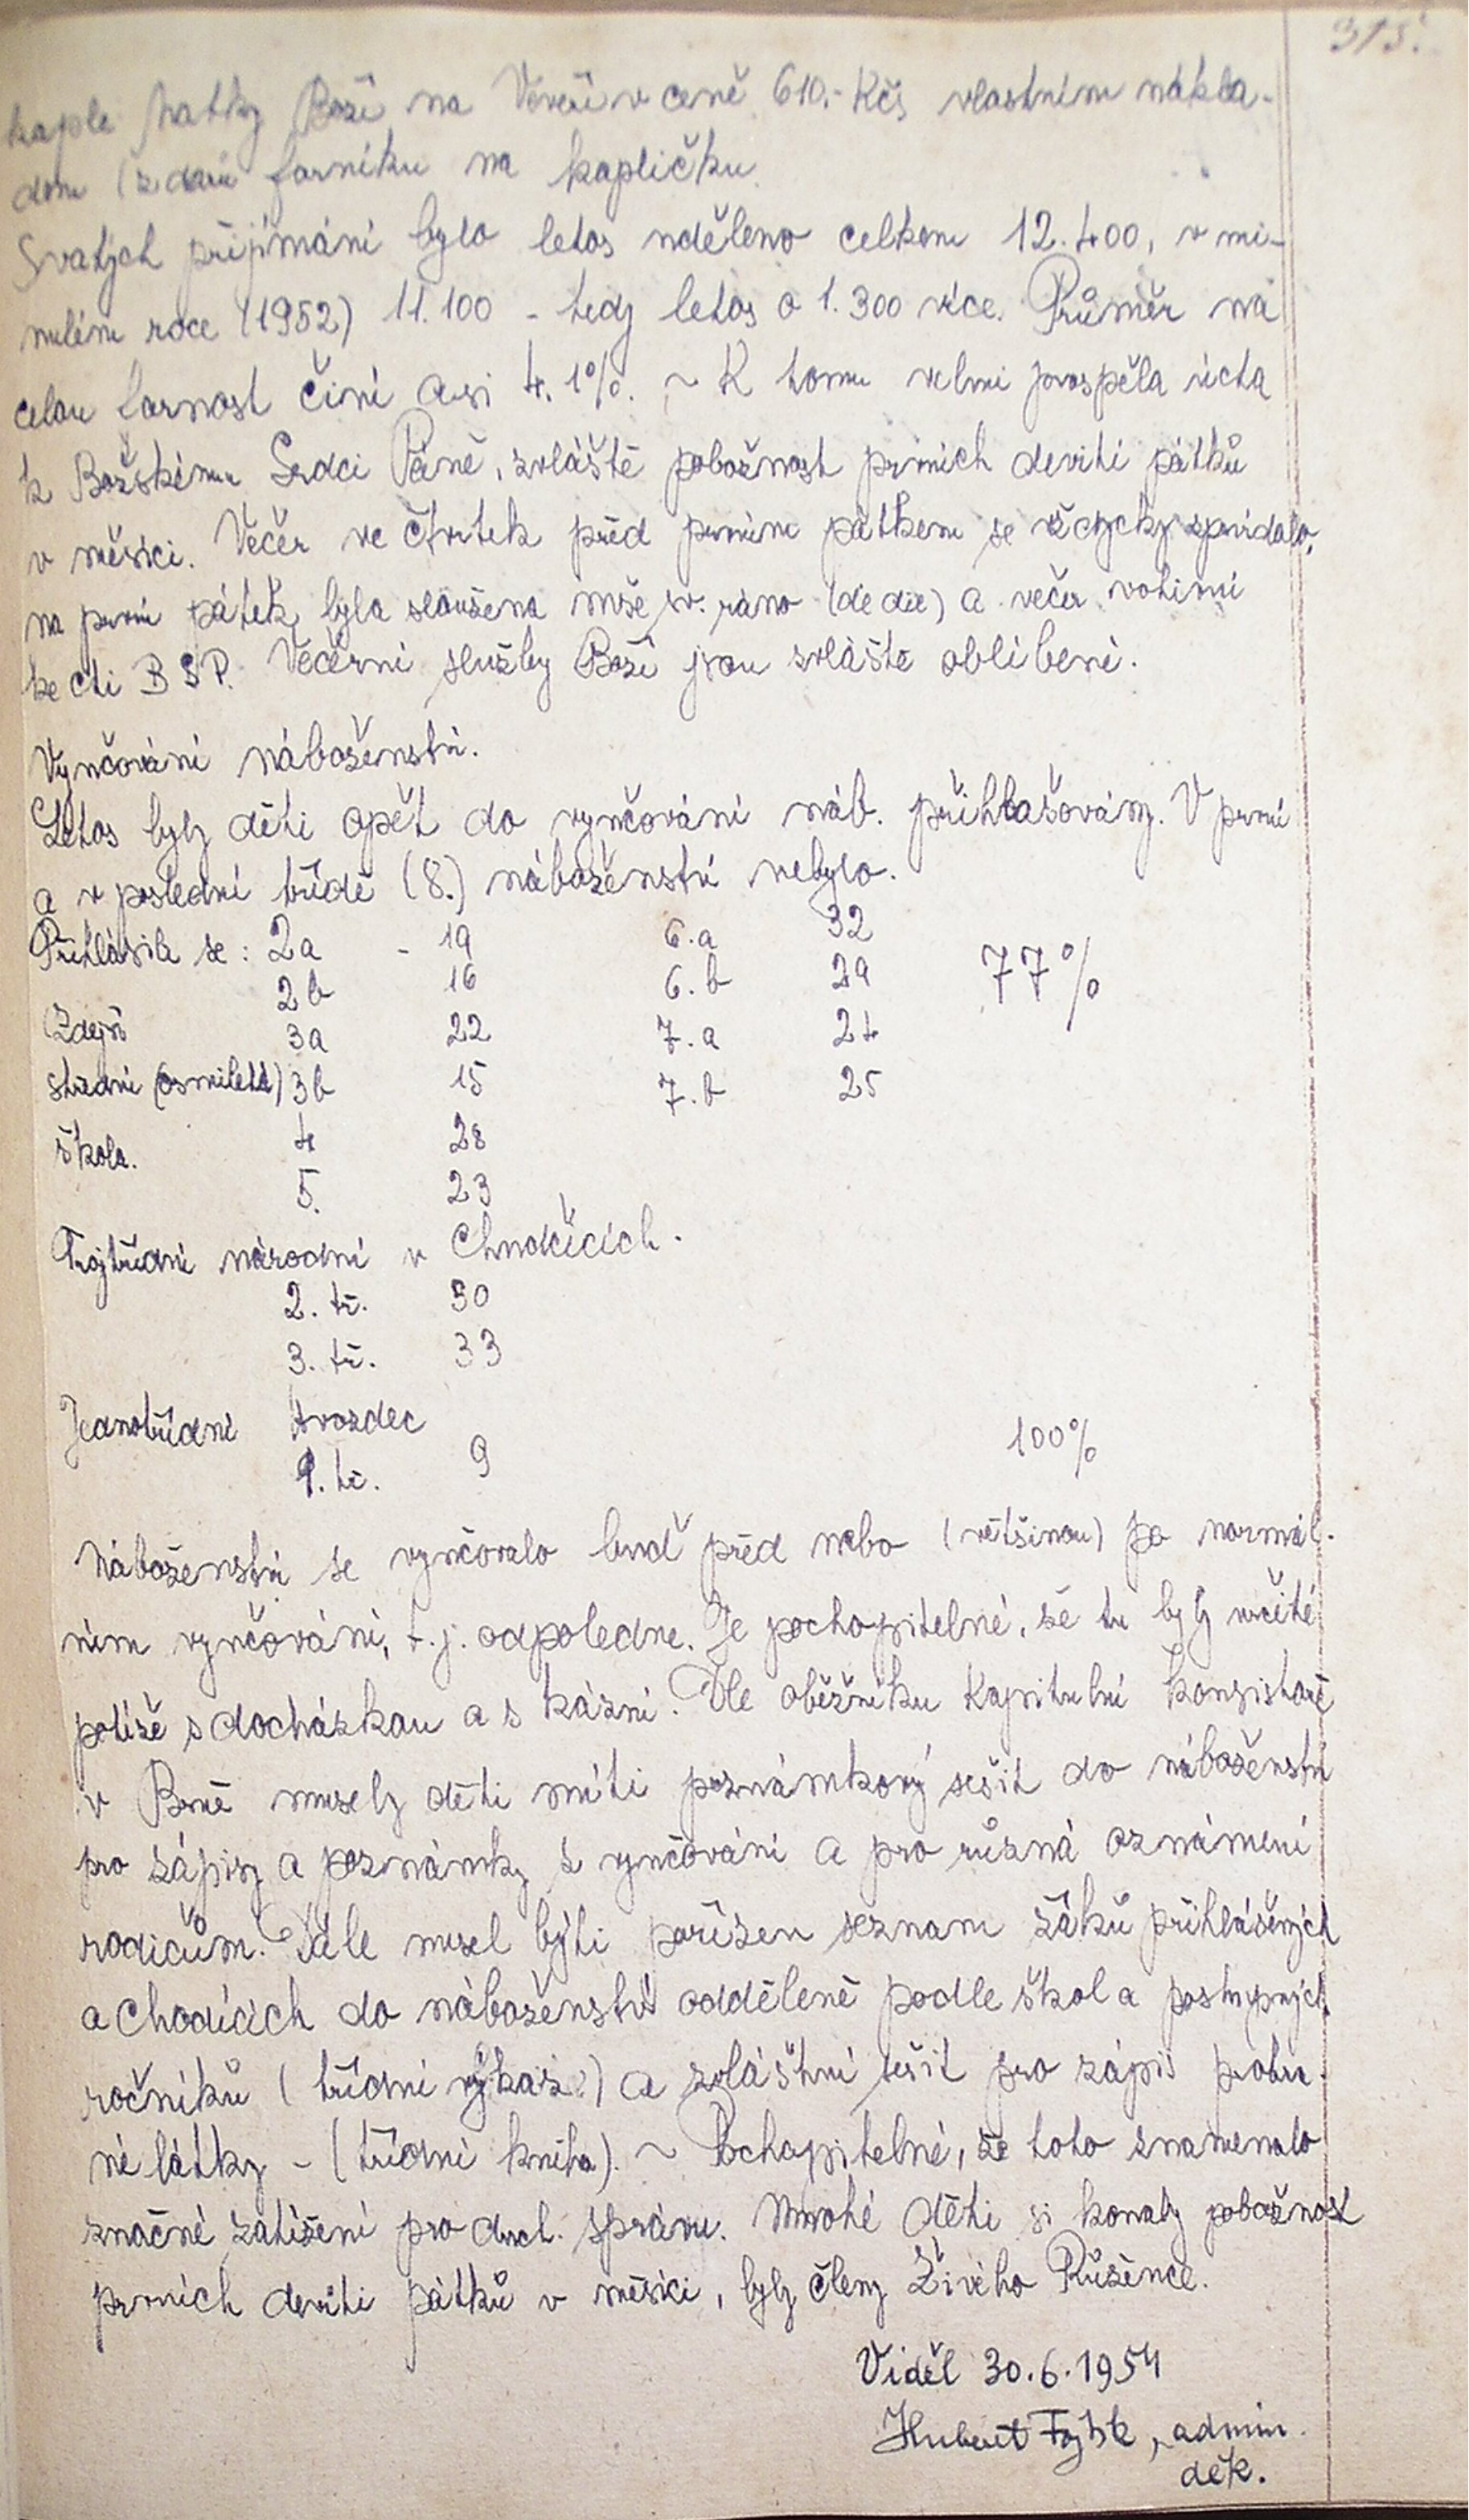 315.
kaple Matky Boží na Veveří v ceně 610.- Kčs vlastním nákla-
dem (z darů farníků na kapličku.
Svatých přijímání bylo letos uděleno celkem 12.400, v mi-
nulém roce (1952) 11.100 - tedy letos o 1.300 více. Průměr na
celou farnost činí asi 4.1%. ~ K tomu velmi prospěla úcta
k Božskému Srdci Páně, zvláště pobožnost prvních devíti pátků
v měsíci. Večer ve čtvrtek před prvním pátkem se vždycky zpovídalo,
na první pátek byla sloužena mše sv. ráno (de die) a večer votivní
ke cti B S P. Večerní služby Boží jsou zvláště oblíbené.
Vyučování náboženství.
Letos byly děti opět do vyučování náb. přihlašovány. V první
a v poslední třídě (8.) náboženství nebylo.
Přihlásilo se: 2a - 19 6.a 32
2b 16 6.b 29 77%
Zdejší 3a 22 7.a 24
střední (osmiletá) 3b 15 7.b 25
škola. 4 28
5. 23
Trojtřídní národní v Chudčicích.
2. tř. 30
3. tř. 33
Jednotřídní Hvozdec
1. tř. 9 100%
Náboženství se vyučovalo buď před nebo (většinou) po normál-
ním vyučování, t.j. odpoledne. Je pochopitelné, že tu byly určité
potíže s docházkou a s kázní. Dle oběžníku Kapitulní konsistoře
v Brně musely děti míti poznámkový sešit do náboženství
pro zápisy a poznámky z vyučování a pro různá oznámení
rodičům. Dále musel býti pořízen seznam žáků přihlášených
a chodících do náboženství odděleně podle škol a postupných
ročníků (třídní výkaz) a zvláštní sešit pro zápis probra-
né látky - (třídní kniha). ~ Pochopitelné, že toto znamenalo
značné zatížení pro duch. správu. Mnohé děti si konaly pobožnost
prvních devíti pátků v měsíci, byly členy Živého Růžence.
Viděl 30.6.1954
Hubert Fojtík, admin.
děk.